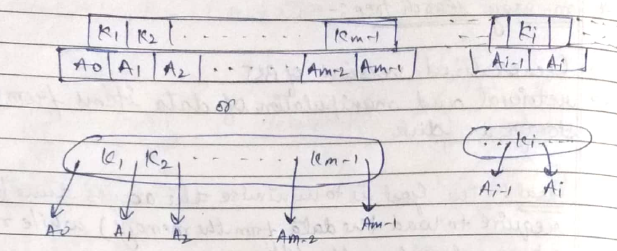 K1 K2 . . . . . . . Km-1
Ki
A0 A1 A2 . . . . Am-2 Am-1
Ai-1 Ai
or
K1 K2 . . . . . . Km-1
. . Ki . . .
A0 A1 A2 Am-2 Am-1
Ai-1 Ai